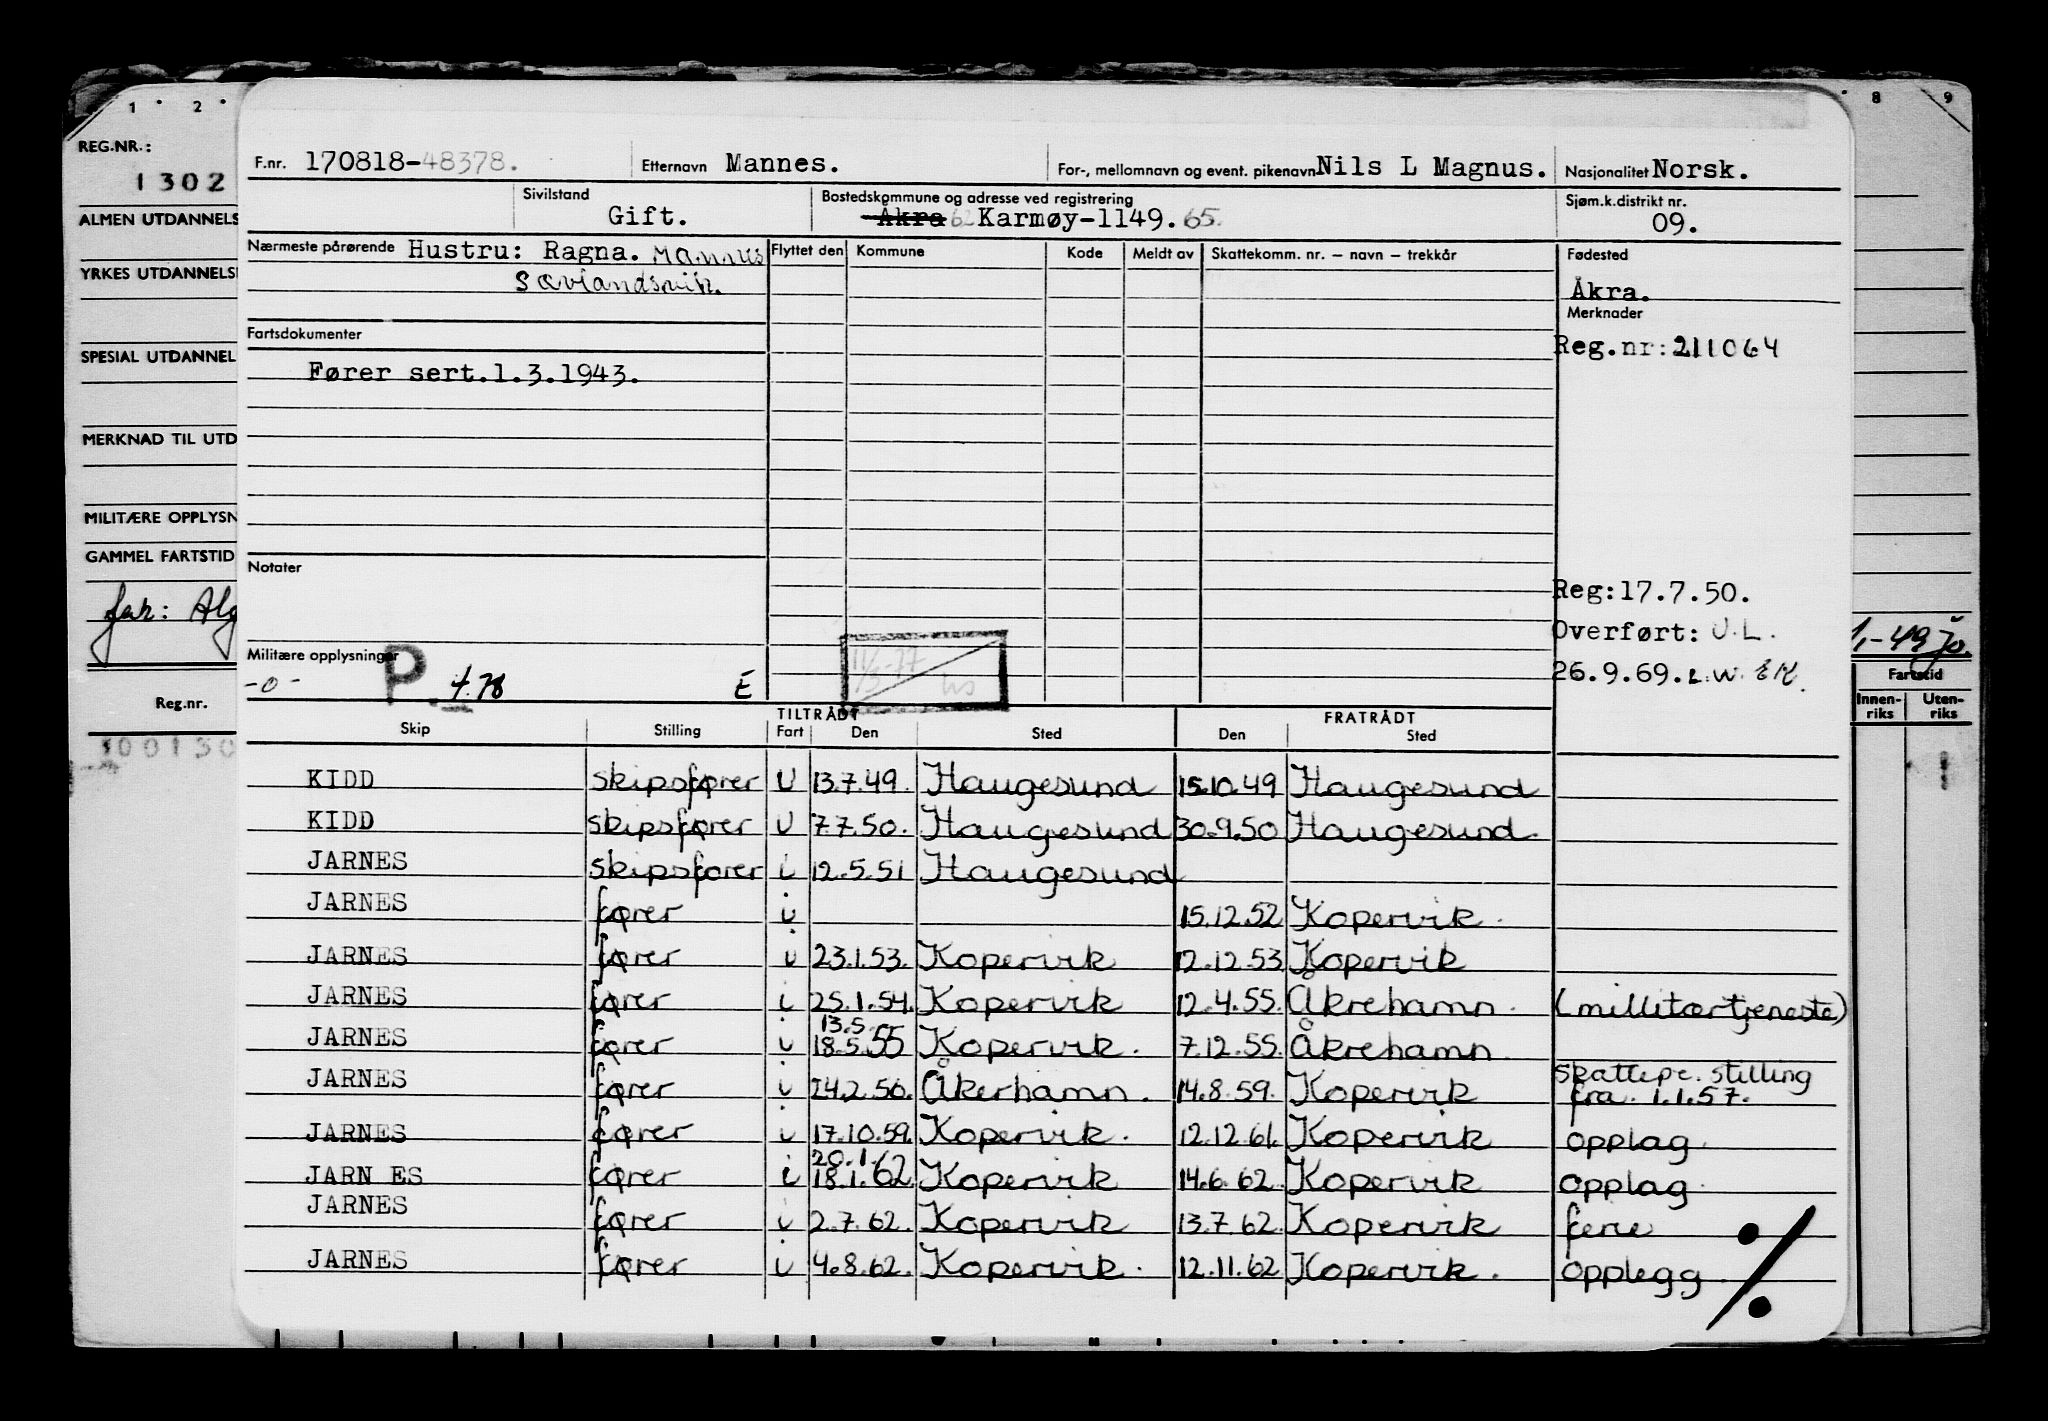 1 2 8 9
REG.NR.:
1302
ALMEN UTDANNELS
YRKES UTDANNELS
SPESIAL UTDANNEL
MERKNAD TIL UTD
MILITÆRE OPPLYSN
GAMMEL FARTSTID
far: Alg
Reg.nr.
100130
F.nr. 170818-48378. Etternavn Mannes. For-, mellomnavn og event. pikenavn Nils L Magnus. Nasjonalitet Norsk.
Sivilstand Gift. Bostedskommune og adresse ved registrering Åkra 62 Karmøy-1149. 65. Sjøm.k.distrikt nr. 09.
Nærmeste pårørende Hustru: Ragna. Mannes Flyttet den Kommune Kode Meldt av Skattekomm. nr. – navn – trekkår Fødested
Sævlandsvik. Åkra.
Merknader
Fartsdokumenter Reg.nr: 211064
Fører sert.1.3.1943.
Notater
Reg:17.7.50.
Overført: U.L.
26.9.69. L.W. EK.
Militære opplysninger
-0- P 4.78 E 11/3-77
1-49 Jo.
Fartstid
Innen-riks Uten-riks
TILTRÅDT FRATRÅDT
Skip Stilling Fart Den Sted Den Sted
KIDD skipsfører U 13.7.49. Haugesund 15.10.49 Haugesund
KIDD skipsfører U 7.7.50. Haugesund 30.9.50 Haugesund.
JARNES skipsfører i 12.5.51 Haugesund
JARNES fører i 15.12.52 Kopervik.
JARNES fører i 23.1.53. Kopervik 12.12.53 Kopervik
JARNES fører i 25.1.54. Kopervik 12.4.55. Åkrehamn. (millitærtjeneste)
13.5.
JARNES fører i 18.5.55 Kopervik. 7.12.55. Åkrehamn
JARNES fører i 14.2.56. Åkerhamn. 14.8.59. Kopervik skattepl. stilling
fra. 1.1.57.
JARNES fører i 17.10.59. Kopervik. 12.12.61. Kopervik opplag
20.1.
JARN ES fører i 18.1.62. Kopervik 14.6.62. Kopervik opplag.
JARNES fører i 2.7.62. Kopervik 13.7.62. Kopervik ferie
JARNES fører i 4.8.62. Kopervik. 12.11.62 Kopervik. opplegg.